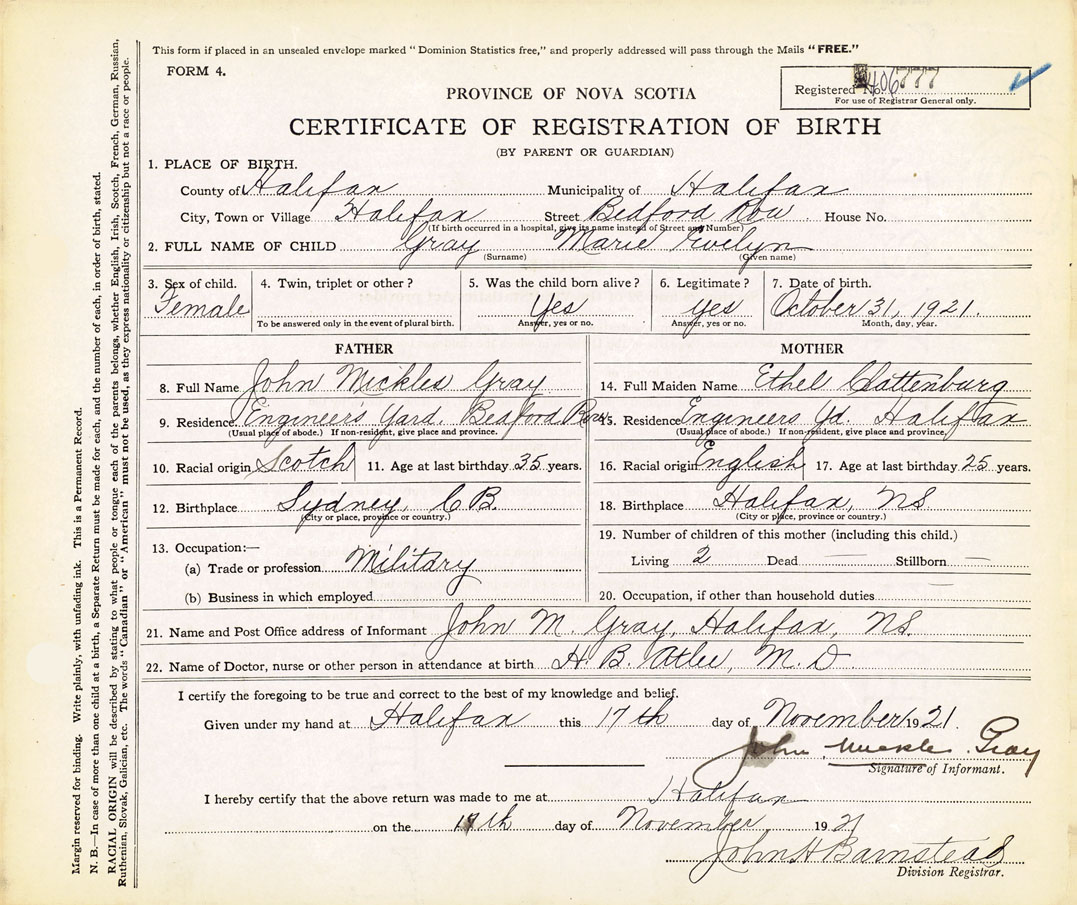 This form if placed in an unsealed envelope marked "Dominion Statistics free," and properly addressed will pass through the Mails "FREE."
FORM 4.
Registered No. 406777
For use of Registrar General only.
PROVINCE OF NOVA SCOTIA
CERTIFICATE OF REGISTRATION OF BIRTH
(BY PARENT OR GUARDIAN)
1. PLACE OF BIRTH.
County of Halifax Municipality of Halifax
City, Town or Village Halifax Street Bedford Row House No.
(If birth occurred in a hospital, give its name instead of Street and Number)
2. FULL NAME OF CHILD Gray Marie Evelyn
(Surname) (Given name)
3. Sex of child. 4. Twin, triplet or other? 5. Was the child born alive? 6. Legitimate? 7. Date of birth.
Female Yes yes October 31, 1921.
To be answered only in the event of plural birth. Answer, yes or no. Answer, yes or no. Month, day, year.
FATHER
8. Full Name John Mickles Gray
9. Residence Engineer's Yard, Bedford Row
(Usual place of abode.) If non-resident, give place and province.
10. Racial origin Scotch 11. Age at last birthday 35 years.
12. Birthplace Sydney, C.B.
(City or place, province or country.)
13. Occupation:—
(a) Trade or profession Military
(b) Business in which employed
MOTHER
14. Full Maiden Name Ethel Clattenburg
15. Residence Engineers Yd. Halifax
(Usual place of abode.) If non-resident, give place and province.
16. Racial origin English 17. Age at last birthday 25 years.
18. Birthplace Halifax, NS.
(City or place, province or country.)
19. Number of children of this mother (including this child.)
Living 2 Dead — Stillborn —
20. Occupation, if other than household duties —
21. Name and Post Office address of Informant John M. Gray, Halifax, NS.
22. Name of Doctor, nurse or other person in attendance at birth H. B. Atlee, M.D
I certify the foregoing to be true and correct to the best of my knowledge and belief.
Given under my hand at Halifax this 17th day of November 1921.
John Muckles Gray
Signature of Informant.
I hereby certify that the above return was made to me at Halifax
on the 17th day of November 1921
John H Barnstead
Division Registrar.
Margin reserved for binding. Write plainly, with unfading ink. This is a Permanent Record.
N. B.—In case of more than one child at a birth, a Separate Return must be made for each, and the number of each, in order of birth, stated.
RACIAL ORIGIN will be described by stating to what people or tongue each of the parents belongs, whether English, Irish, Scotch, French, German, Russian,
Ruthenian, Slovak, Galician, etc. The words "Canadian" or "American" must not be used, as they express nationality or citizenship but not a race or people.